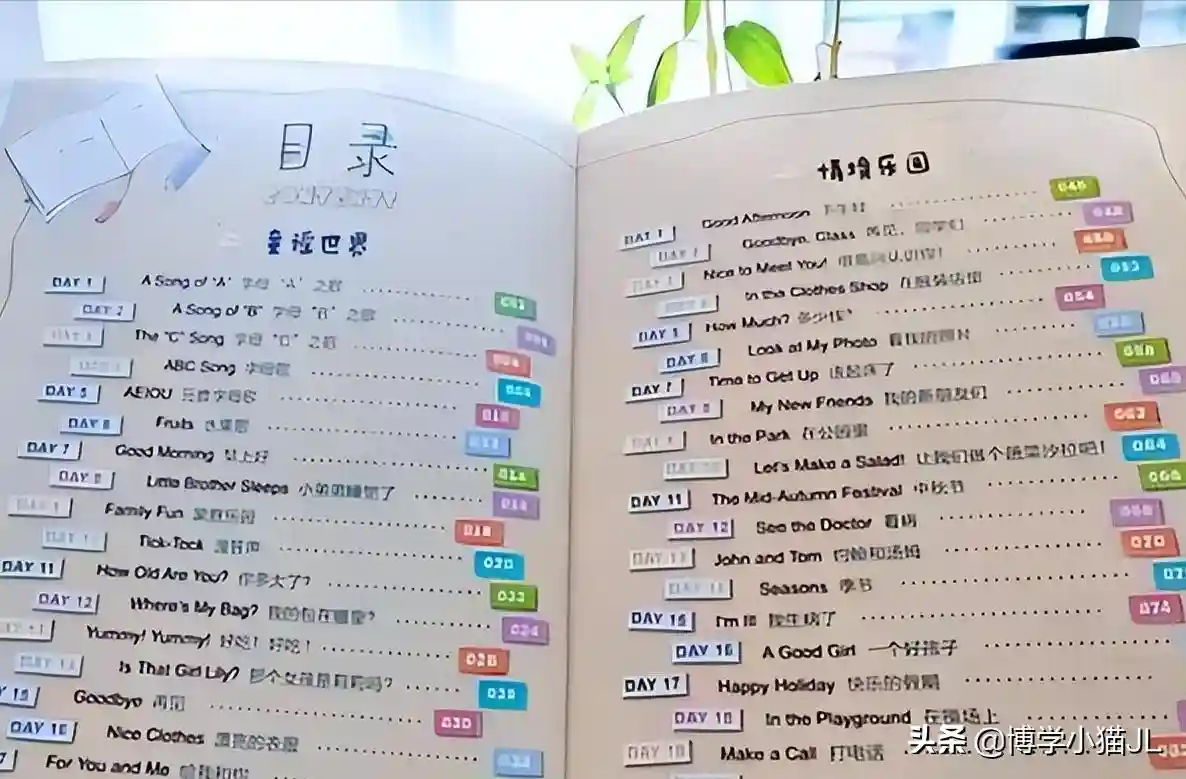 目 录
童谣世界
DAY 1 A Song of "A" 字母 "A" 之歌
DAY 2 A Song of "B" 字母 "B" 之歌
The "C" Song 字母 "C" 之歌
ABC Song 字母歌
DAY 5 AEIOU 元音字母歌
DAY 6 Fruits 水果歌
DAY 7 Good Morning 早上好
DAY 8 Little Brother Sleeps 小弟弟睡觉了
Family Fun 家庭乐园
Tick-Tock
DAY 11 How Old Are You? 你多大了? 022
DAY 12 Where's My Bag? 我的包在哪里? 024
Yummy! Yummy! 好吃! 好吃!
Is That Girl Lily? 那个女孩是莉莉吗?
Goodbye 再见 030
DAY 16 Nice Clothes 漂亮的衣服
For You and Me
情境乐园
DAY 1 Good Afternoon 下午好 046
DAY 2 Goodbye, Class 再见，同学们 048
Nice to Meet You! 050
In the Clothes Shop 在服装店里 052
DAY 5 How Much? 多少钱? 054
DAY 6 Look at My Photo 看我的照片
DAY 7 Time to Get Up 该起床了 058
DAY 8 My New Friends 我的新朋友们 060
In the Park 在公园里 062
Let's Make a Salad! 让我们做个蔬菜沙拉吧! 064
DAY 11 The Mid-Autumn Festival 中秋节 066
DAY 12 See the Doctor 看病 068
DAY 13 John and Tom 约翰和汤姆 070
DAY 14 Seasons 季节
DAY 15 I'm Ill 我生病了 074
DAY 16 A Good Girl 一个好孩子
DAY 17 Happy Holiday 快乐的假期
DAY 18 In the Playground 在操场上
DAY 19 Make a Call 打电话
头条 @博学小猫JL